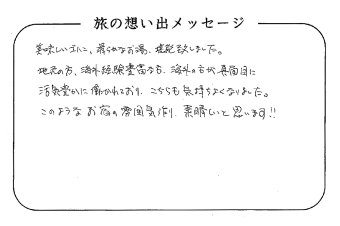 旅の想い出メッセージ
美味しいゴハン、柔らかなお湯、堪能致しました。
地元の方、海外経験豊富な方、海外の方が真面目に
活気豊かに働かれており、こちらも気持ちよくなりました。
このようなお宿の雰囲気作り、素晴しいと思います!!